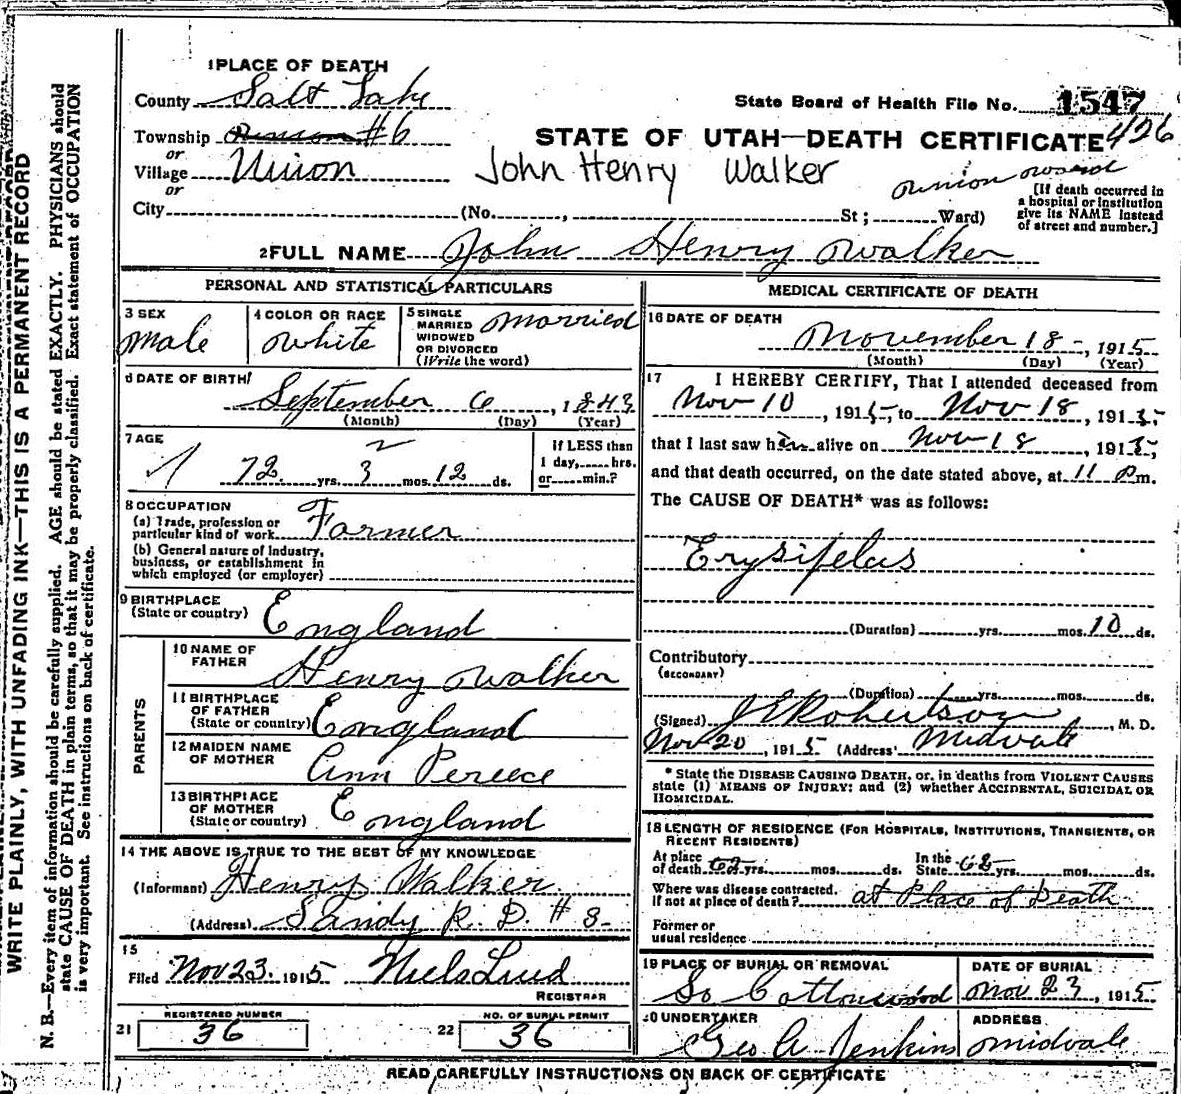 1 PLACE OF DEATH
County Salt Lake
State Board of Health File No. 1547
Township Union #6
STATE OF UTAH—DEATH CERTIFICATE 426
or
Village Union
John Henry Walker
or
[If death occurred in a hospital or institution give its NAME instead of street and number.]
City (No. , St; Ward)
2 FULL NAME John Henry Walker
PERSONAL AND STATISTICAL PARTICULARS
3 SEX
Male
4 COLOR OR RACE
White
5 SINGLE
MARRIED
WIDOWED
OR DIVORCED
(Write the word)
Married
6 DATE OF BIRTH
September 6, 1843
(Month) (Day) (Year)
7 AGE
2
72 yrs. 3 mos. 12 ds.
If LESS than
1 day, hrs.
or min.?
8 OCCUPATION
(a) Trade, profession or
particular kind of work Farmer
(b) General nature of Industry,
business, or establishment in
which employed (or employer)
9 BIRTHPLACE
(State or country) England
PARENTS
10 NAME OF
FATHER Henry Walker
11 BIRTHPLACE
OF FATHER
(State or country) England
12 MAIDEN NAME
OF MOTHER Ann Pereece
13 BIRTHPLACE
OF MOTHER
(State or country) England
14 THE ABOVE IS TRUE TO THE BEST OF MY KNOWLEDGE
(Informant) Henry Walker
(Address) Sandy R. D. # 3-
15
Filed Nov 23 1915 Niels Lind
REGISTRAR
21 REGISTERED NUMBER
36
22 NO. OF BURIAL PERMIT
36
MEDICAL CERTIFICATE OF DEATH
16 DATE OF DEATH
November 18-, 1915
(Month) (Day) (Year)
17 I HEREBY CERTIFY, That I attended deceased from
Nov 10, 1915, to Nov 18, 1915,
that I last saw him alive on Nov 18, 1915,
and that death occurred, on the date stated above, at 11 P m.
The CAUSE OF DEATH* was as follows:
Erysipelas
(Duration) yrs. mos. 10 ds.
Contributory
(SECONDARY)
(Duration) yrs. mos. ds.
(Signed) J E Robertson, M. D.
Nov 20, 1915 (Address) Midvale
* State the DISEASE CAUSING DEATH, or, in deaths from VIOLENT CAUSES
state (1) MEANS OF INJURY; and (2) whether ACCIDENTAL, SUICIDAL OR
HOMICIDAL.
18 LENGTH OF RESIDENCE (FOR HOSPITALS, INSTITUTIONS, TRANSIENTS, OR
RECENT RESIDENTS)
At place
of death 62 yrs. mos. ds.
In the
State 62 yrs. mos. ds.
Where was disease contracted,
if not at place of death? at Place of Death
Former or
usual residence
19 PLACE OF BURIAL OR REMOVAL
So Cottonwood
DATE OF BURIAL
Nov 23, 1915
20 UNDERTAKER
Geo A. Jenkins
ADDRESS
Midvale
READ CAREFULLY INSTRUCTIONS ON BACK OF CERTIFICATE
WRITE PLAINLY, WITH UNFADING INK—THIS IS A PERMANENT RECORD
N. B.—Every item of information should be carefully supplied. AGE should be stated EXACTLY. PHYSICIANS should
state CAUSE OF DEATH in plain terms, so that it may be properly classified. Exact statement of OCCUPATION
is very important. See instructions on back of certificate.